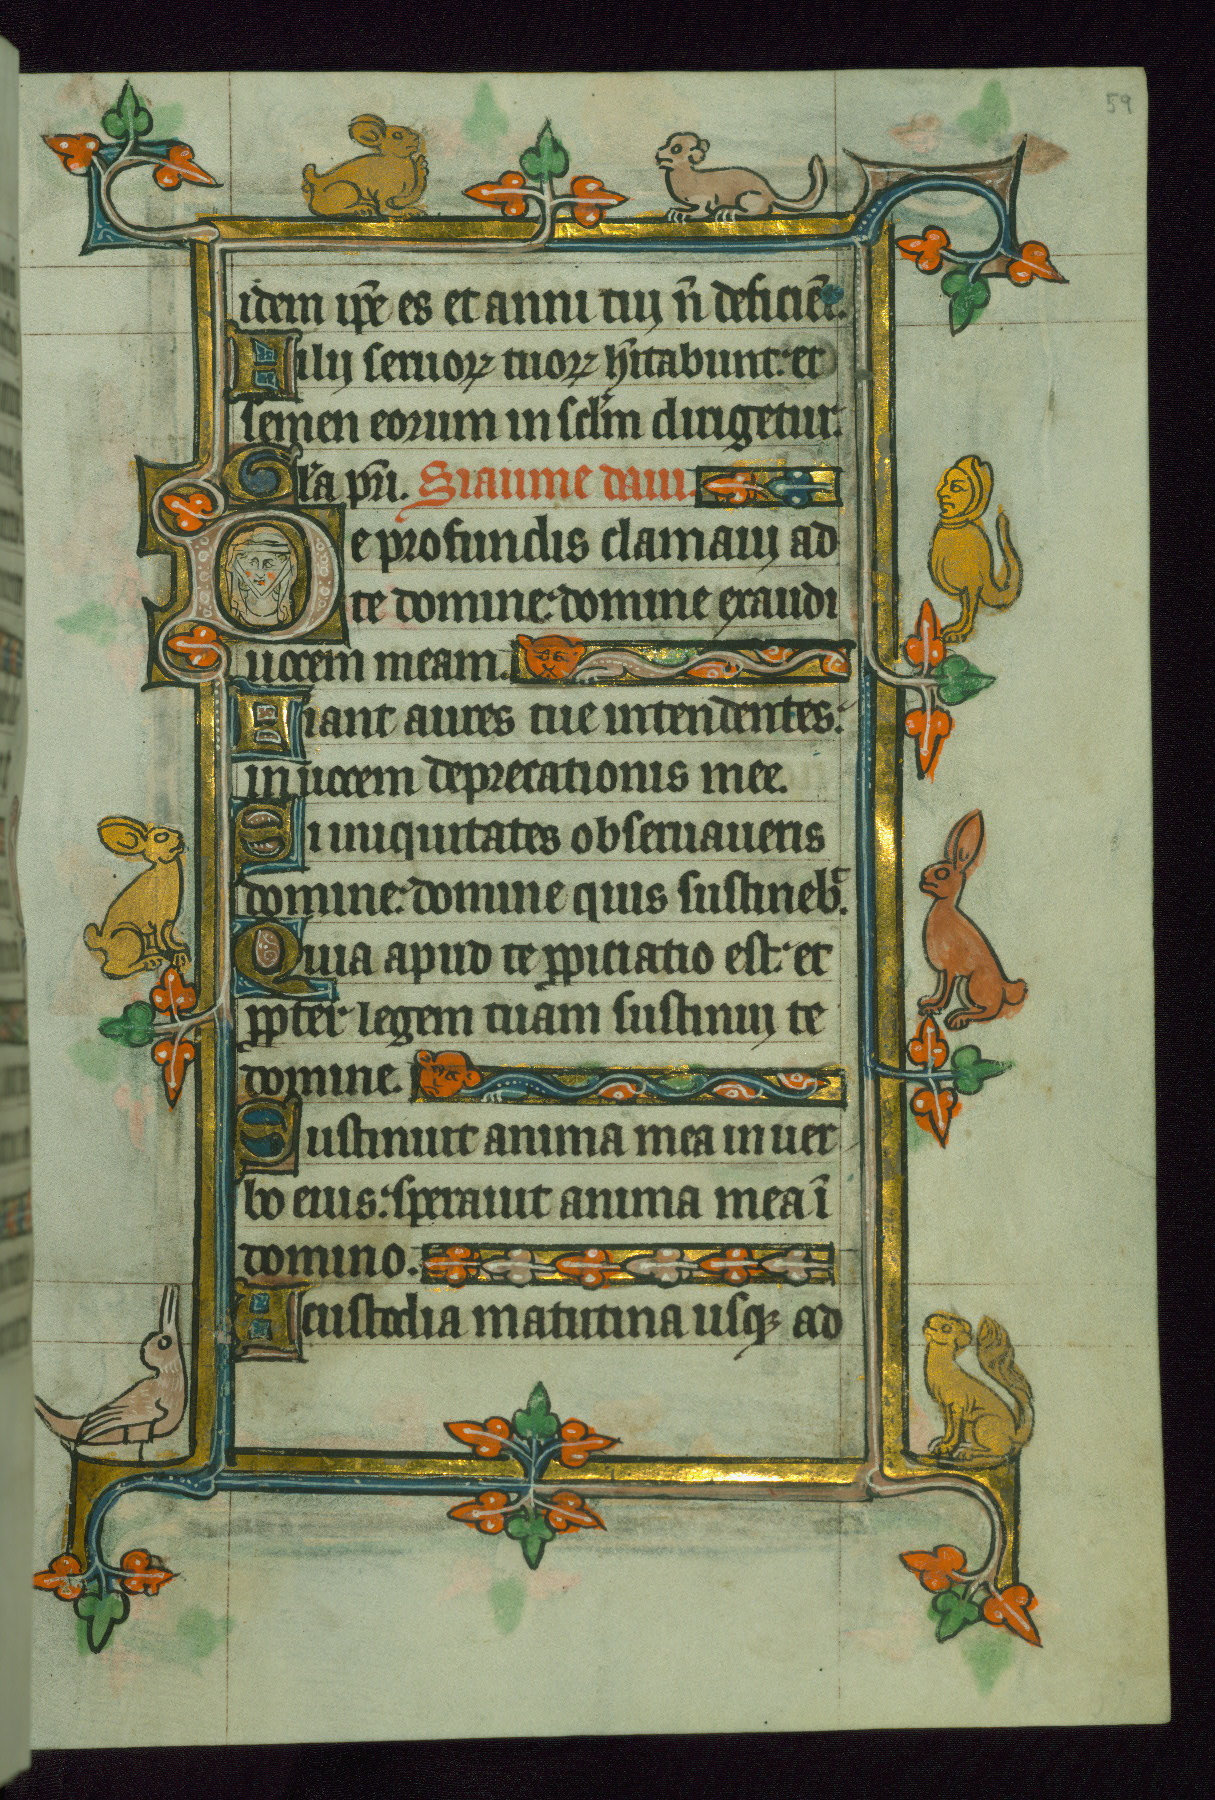 59
idem ip̄e es et anni tui n̄ deficiēt.
Filij seruoꝝ tuoꝝ hītabunt: et
semen eorum in sclm̄ dirigetur.
Gl̄a pr̄i. Siaume daui.
De profundis clamaui ad
te domine: domine exaudi
uocem meam.
Fiant aures tue intendentes:
in uocem deprecationis mee.
Si iniquitates obseruaueris
domine: domine quis sustineb̄t.
Quia apud te ꝓpiciatio est: et
ꝓpter legem tuam sustinui te
domine.
Sustinuit anima mea in uer
bo eius: sperauit anima mea ī
domino.
A custodia matutina usqꝫ ad